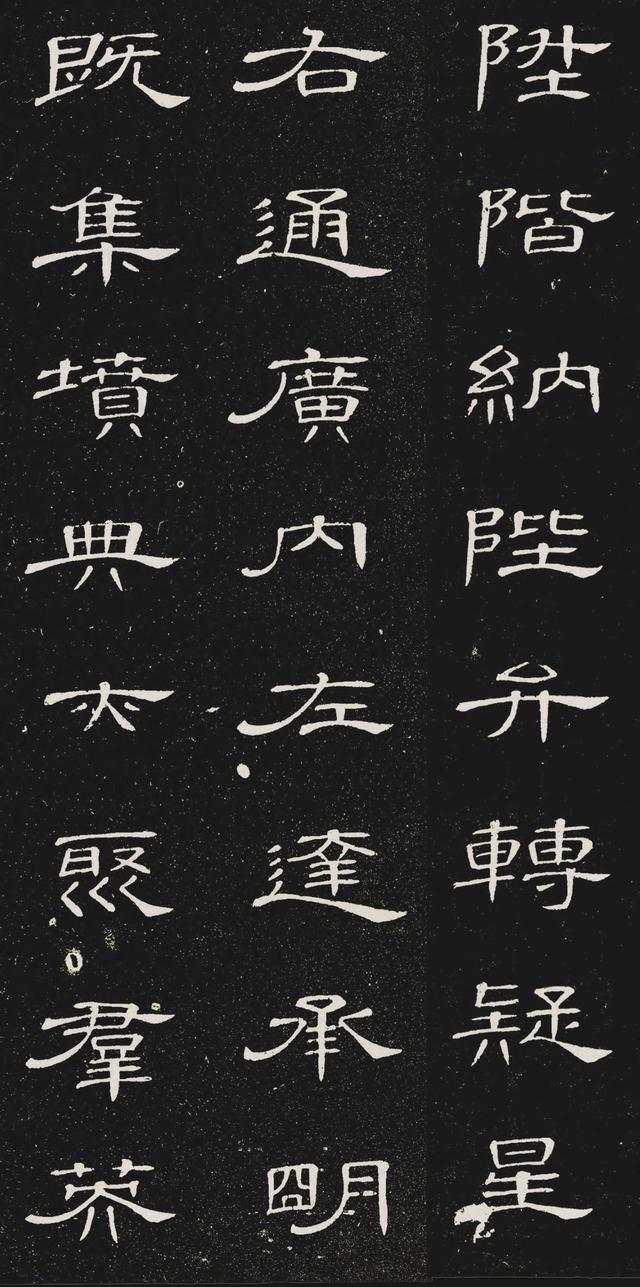 陞階納陛弁轉疑星
右通廣内左達承朙
既集墳典亦聚羣英